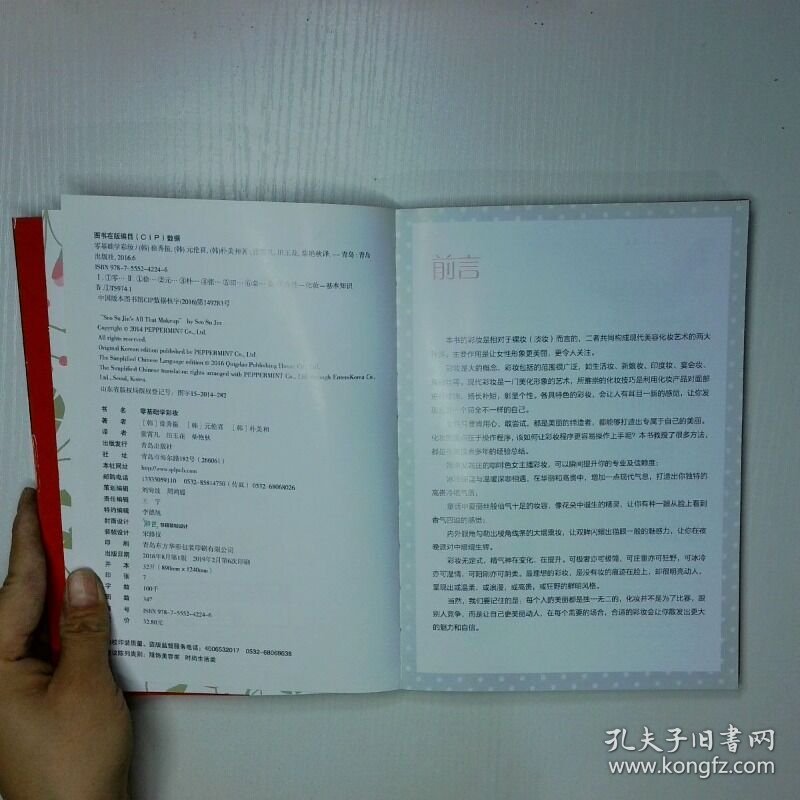 图书在版编目(CIP)数据
零基础学彩妆/(韩)徐秀振,(韩)元伦喜,(韩)朴美和著;田玉花,柴艳秋译.—青岛:青岛
出版社,2016.6
ISBN 978-7-5552-4224-6
Ⅳ.①TS974.1
中国版本图书馆CIP数据核字(2016)第149283号
"Seo Su Jin's All That Makeup" by Seo Su Jin
Copyright © 2014 PEPPERMINT Co., Ltd.
All rights reserved.
Original Korean edition published by PEPPERMINT Co., Ltd.
The Simplified Chinese Language edition © 2016 Qingdao Publishing House Co., Ltd.
The Simplified Chinese translation rights arranged with PEPPERMINT Co., Ltd. through EntersKorea Co.,
Ltd., Seoul, Korea.
山东省版权局版权登记号:图字15-2014-282
书 名 零基础学彩妆
著 者 [韩]徐秀振 [韩]元伦喜 [韩]朴美和
译 者 田玉花 柴艳秋
出版发行 青岛出版社
社 址 青岛市海尔路182号(266061)
本社网址 http://www.qdpub.com
邮购电话 13335059110 0532-85814750(传真) 0532-68068026
策划编辑
责任编辑 王 宁
特约编辑 李德旭
封面设计
装帧设计 宋修仪
印 刷 青岛东方华彩包装印刷有限公司
出版日期 2016年8月第1版 2019年2月第6次印刷
开 本 32开(890mm×1240mm)
印 张 7
字 数 100千
图 数 347
书 号 ISBN 978-7-5552-4224-6
定 价 32.80元
编校印装质量、盗版监督服务电话:4006532017 0532-68068638
建议陈列类别:服饰美容类 时尚生活类
前言
本书的彩妆是相对于裸妆(淡妆)而言的,二者共同构成现代美容化妆艺术的两大
,主要作用是让女性形象更美丽,更令人关注。
彩妆是大的概念,彩妆包括的范围很广泛,如生活妆、新娘妆、印度妆、宴会妆、
等。现代彩妆是一门美化形象的艺术,所推崇的化妆技巧是利用化妆产品对面部
,扬长补短,彰显个性。各具特色的彩妆,会让人有耳目一新的感觉,让你发
个完全不一样的自己。
只要肯用心、敢尝试,都是美丽的缔造者,都能够打造出专属于自己的美丽。
化妆在于操作程序,该如何让彩妆程序更容易操作上手呢?本书教授了很多方法,
都是多年的经验总结。
的咖啡色女主播彩妆,可以瞬间提升你的专业及信赖度;
与温暖深邃相遇,在华丽和高贵中,增加一点现代气息,打造出你独特的
高贵冷艳气质;
童话中夏丽丝般仙气十足的妆容,像花朵中诞生的精灵,让你有种一眼从脸上看到
香气四溢的感觉;
内外眼角勾勒出棱角线条的大烟熏妆,让双眸闪耀出猫眼一般的魅力,让你在夜
晚派对中熠熠生辉。
彩妆无定式,精气神在变化、在提升。可极奢亦可极简,可庄重亦可狂野,可冰冷
亦可温情,可阳刚亦可阴柔。最理想的彩妆,是没有妆的痕迹在脸上,却很明亮动人,
呈现出或温柔,或浪漫,或高贵,或狂野的鲜明风格。
当然,我们要记住的是,每个人的美丽都是独一无二的,化妆并不是为了比赛,跟
别人竞争,而是让自己更美丽动人,在每个需要的场合,合适的彩妆会让你散发出更大
的魅力和自信。
孔夫子旧书网
www.kongfz.com